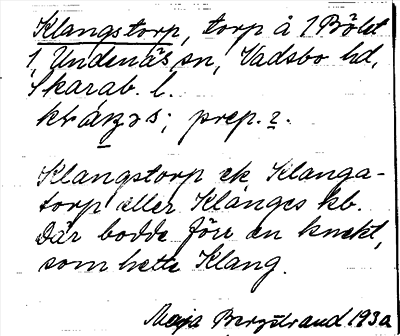 Klangstorp, torp å 1 Bölet
1, Undenäs sn, Vadsbo hd,
Skarab. l.
prep. 2.
Klangstorp ek Klanga-
torp eller Klanges kb.
Där bodde före en knekt,
som hette Klang.
Maja Bergstrand 1930